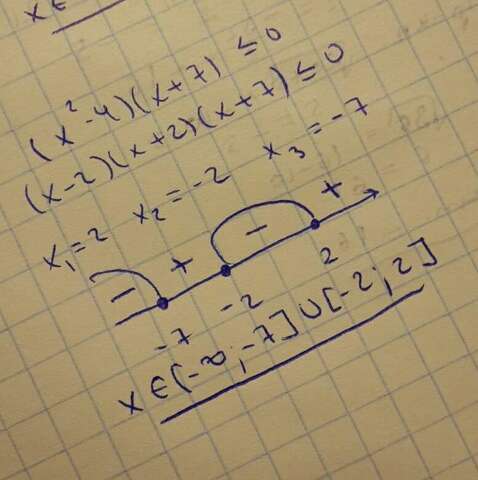 x ∈
(x²-4)(x+7) ≤ 0
(x-2)(x+2)(x+7) ≤ 0
x₁=2 x₂=-2 x₃=-7
- + - +
-7 -2 2
x ∈ (-∞; -7] ∪ [-2; 2]